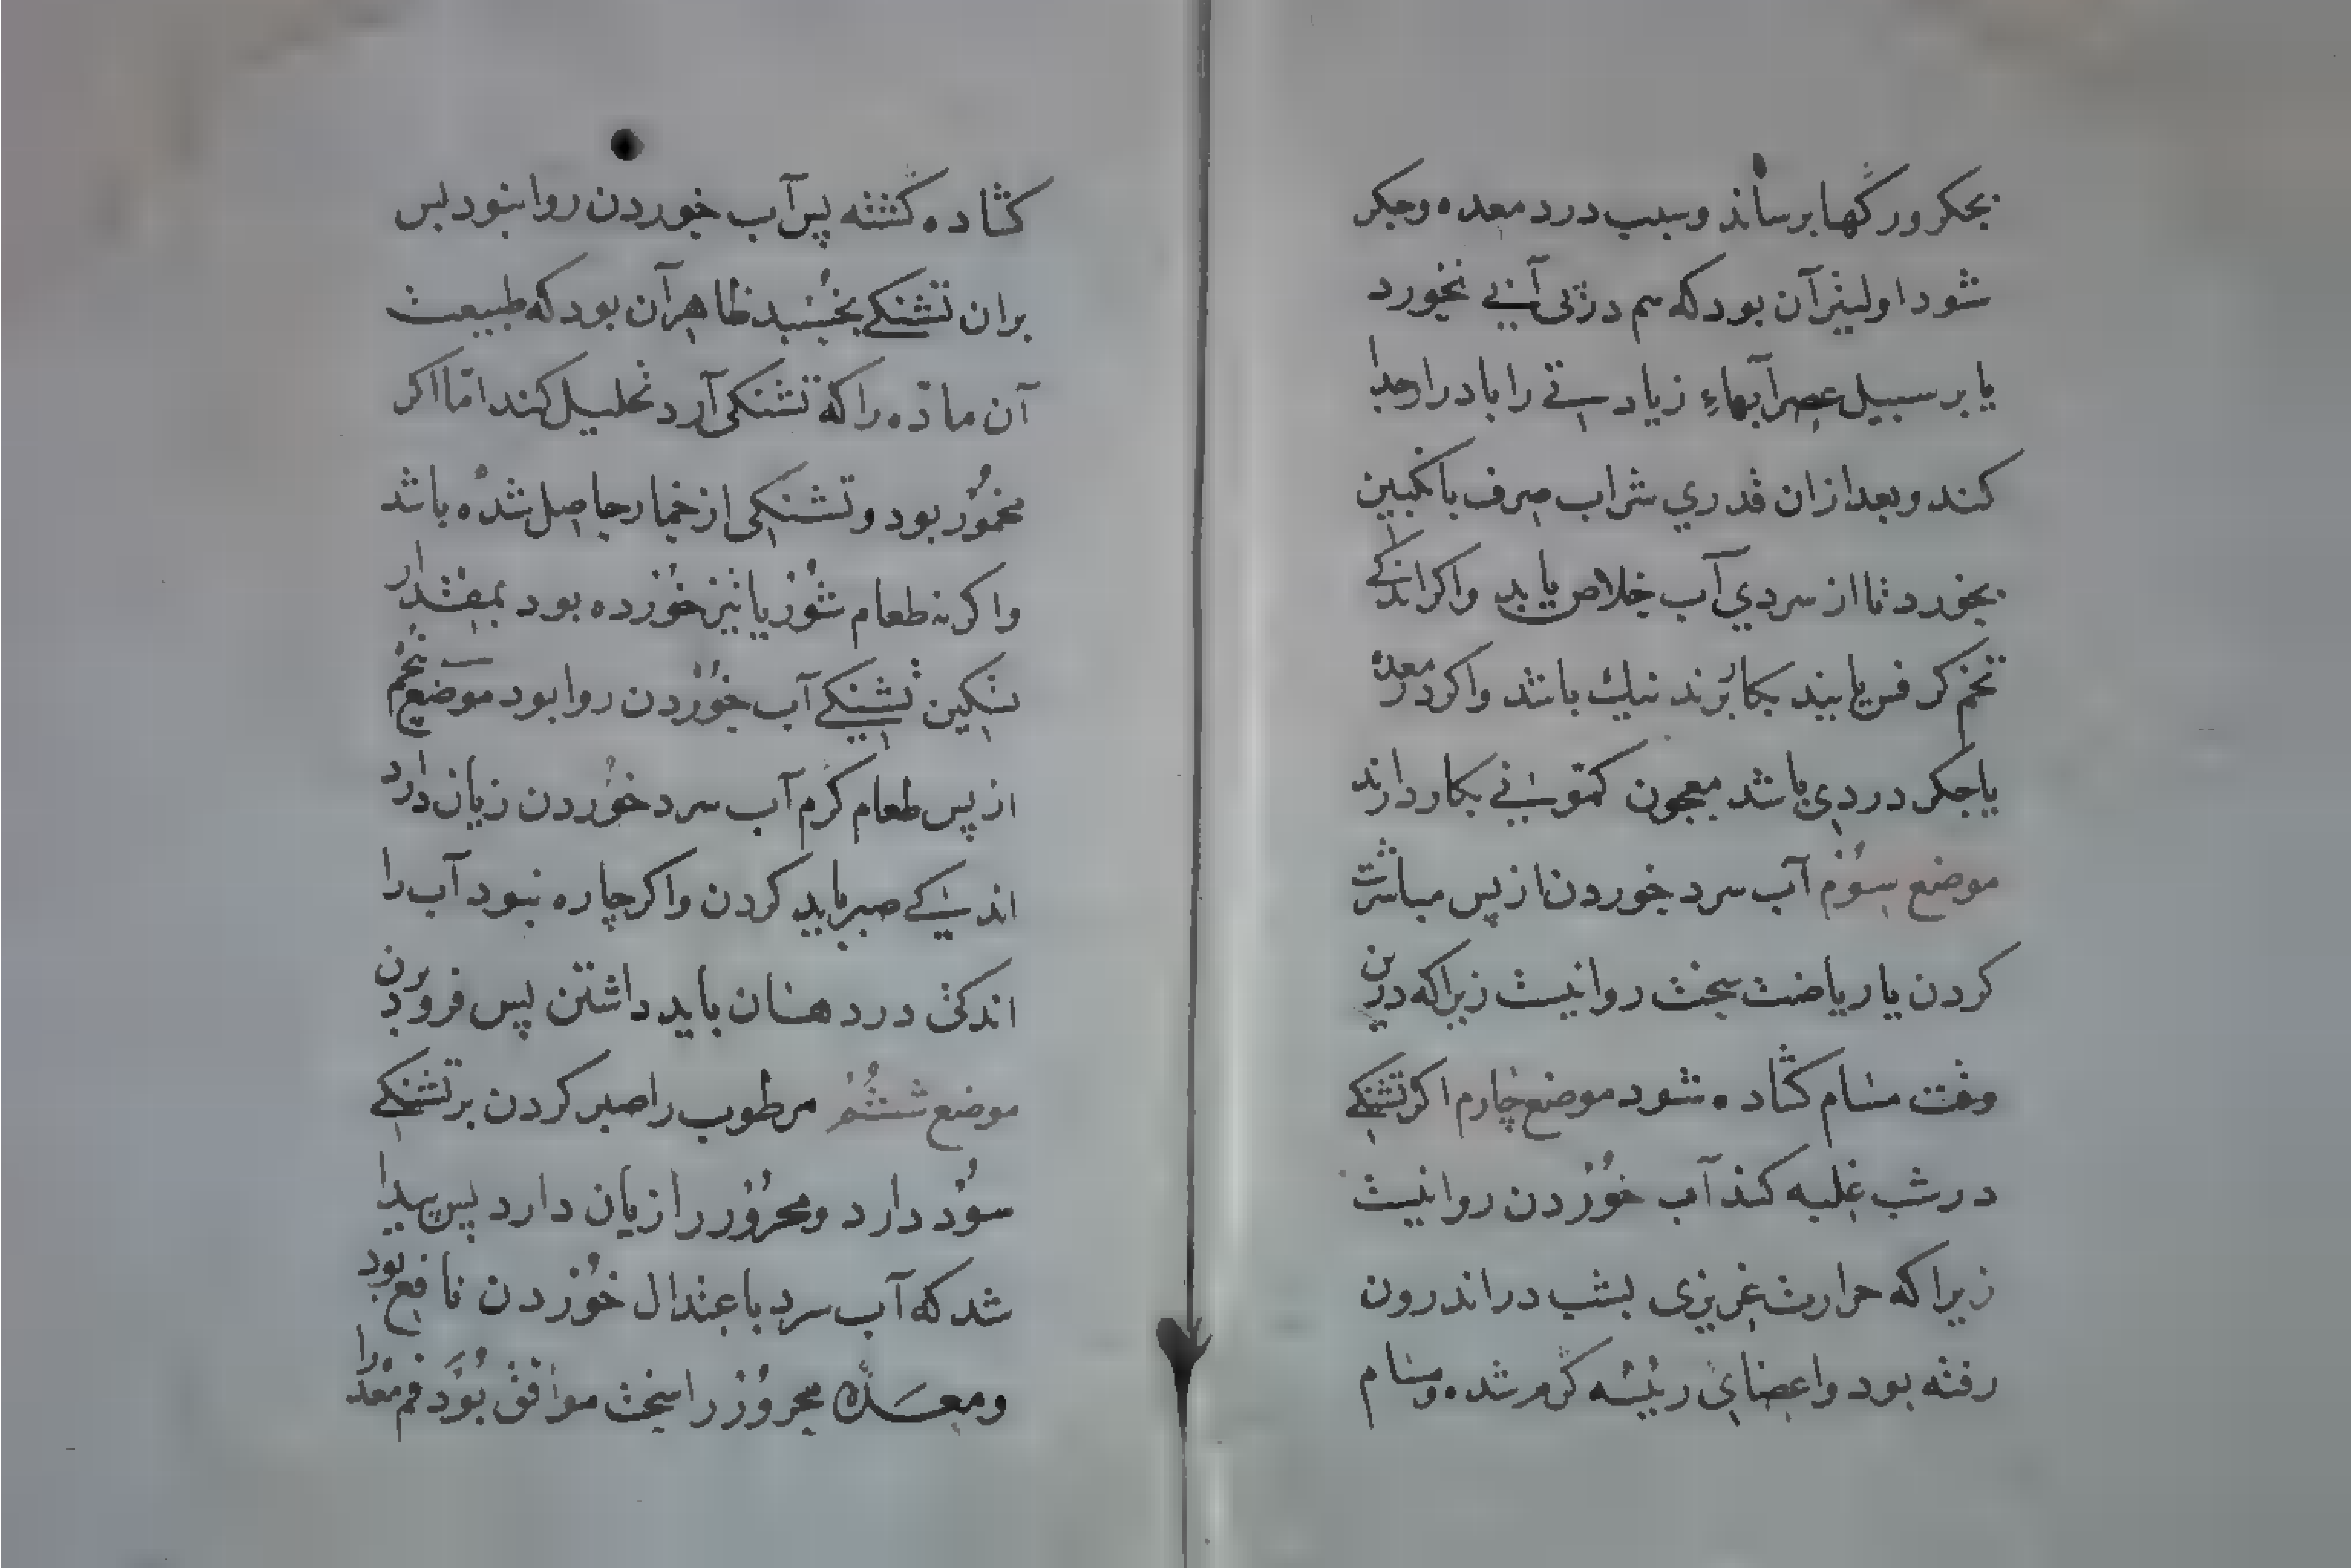 بجکر ورکها برساند و سبب درد معده و جکر
شود اولیتر آن بود که هم در پی آبی نخورد
یا بر سبیل عصر آبهاء زیادستی را با در او جدا
کند و بعد ازان قدري شراب صرف با نکبین
بخورد تا از سردي آب خلاص یابد واکر اندکی
تخم کرفس یابند بکار برند نیك باشد واکر در معده
یا جکر دردی باشد معجون کمونی بکار دارند
موضع سوم آب سرد خوردن از پس مباشرت
کردن یا ریاضت سخت روا نیست زیراکه درین
وقت مسام کشاده شود موضع چارم اکر تشنکی
در شب غلبه کند آب خوردن روا نیست
زیراکه حرارت غریزی بشب در اندرون
رفته بود واعضای رئیسه کرم شده و مسام
کشاده کشته پس آب خوردن روا نبود پس
بران تشنکی بخسبد ظاهر آن بود که طبیعت
آن مادّه را که تشنکی آرد تحلیل کند امّا اکر
مخمور بود و تشنکی از خمار حاصل شده باشد
واکر نه طعام شور یا تیز خورده بود بمقدار
تسکین تشنکی آب خوردن روا بود موضع پنجم
از پس طعام کرم آب سرد خوردن زیان دارد
اندکی صبر باید کردن واکر چاره نبود آب را
اندکی در دهان باید داشتن پس فرو بردن
موضع ششم مرطوب را صبر کردن بر تشنکی
سود دارد ومحرور را زیان دارد پس پیدا
شد که آب سرد باعتدال خوردن نافع بود
ومعده محرور را سخت موافق بود فم معده را